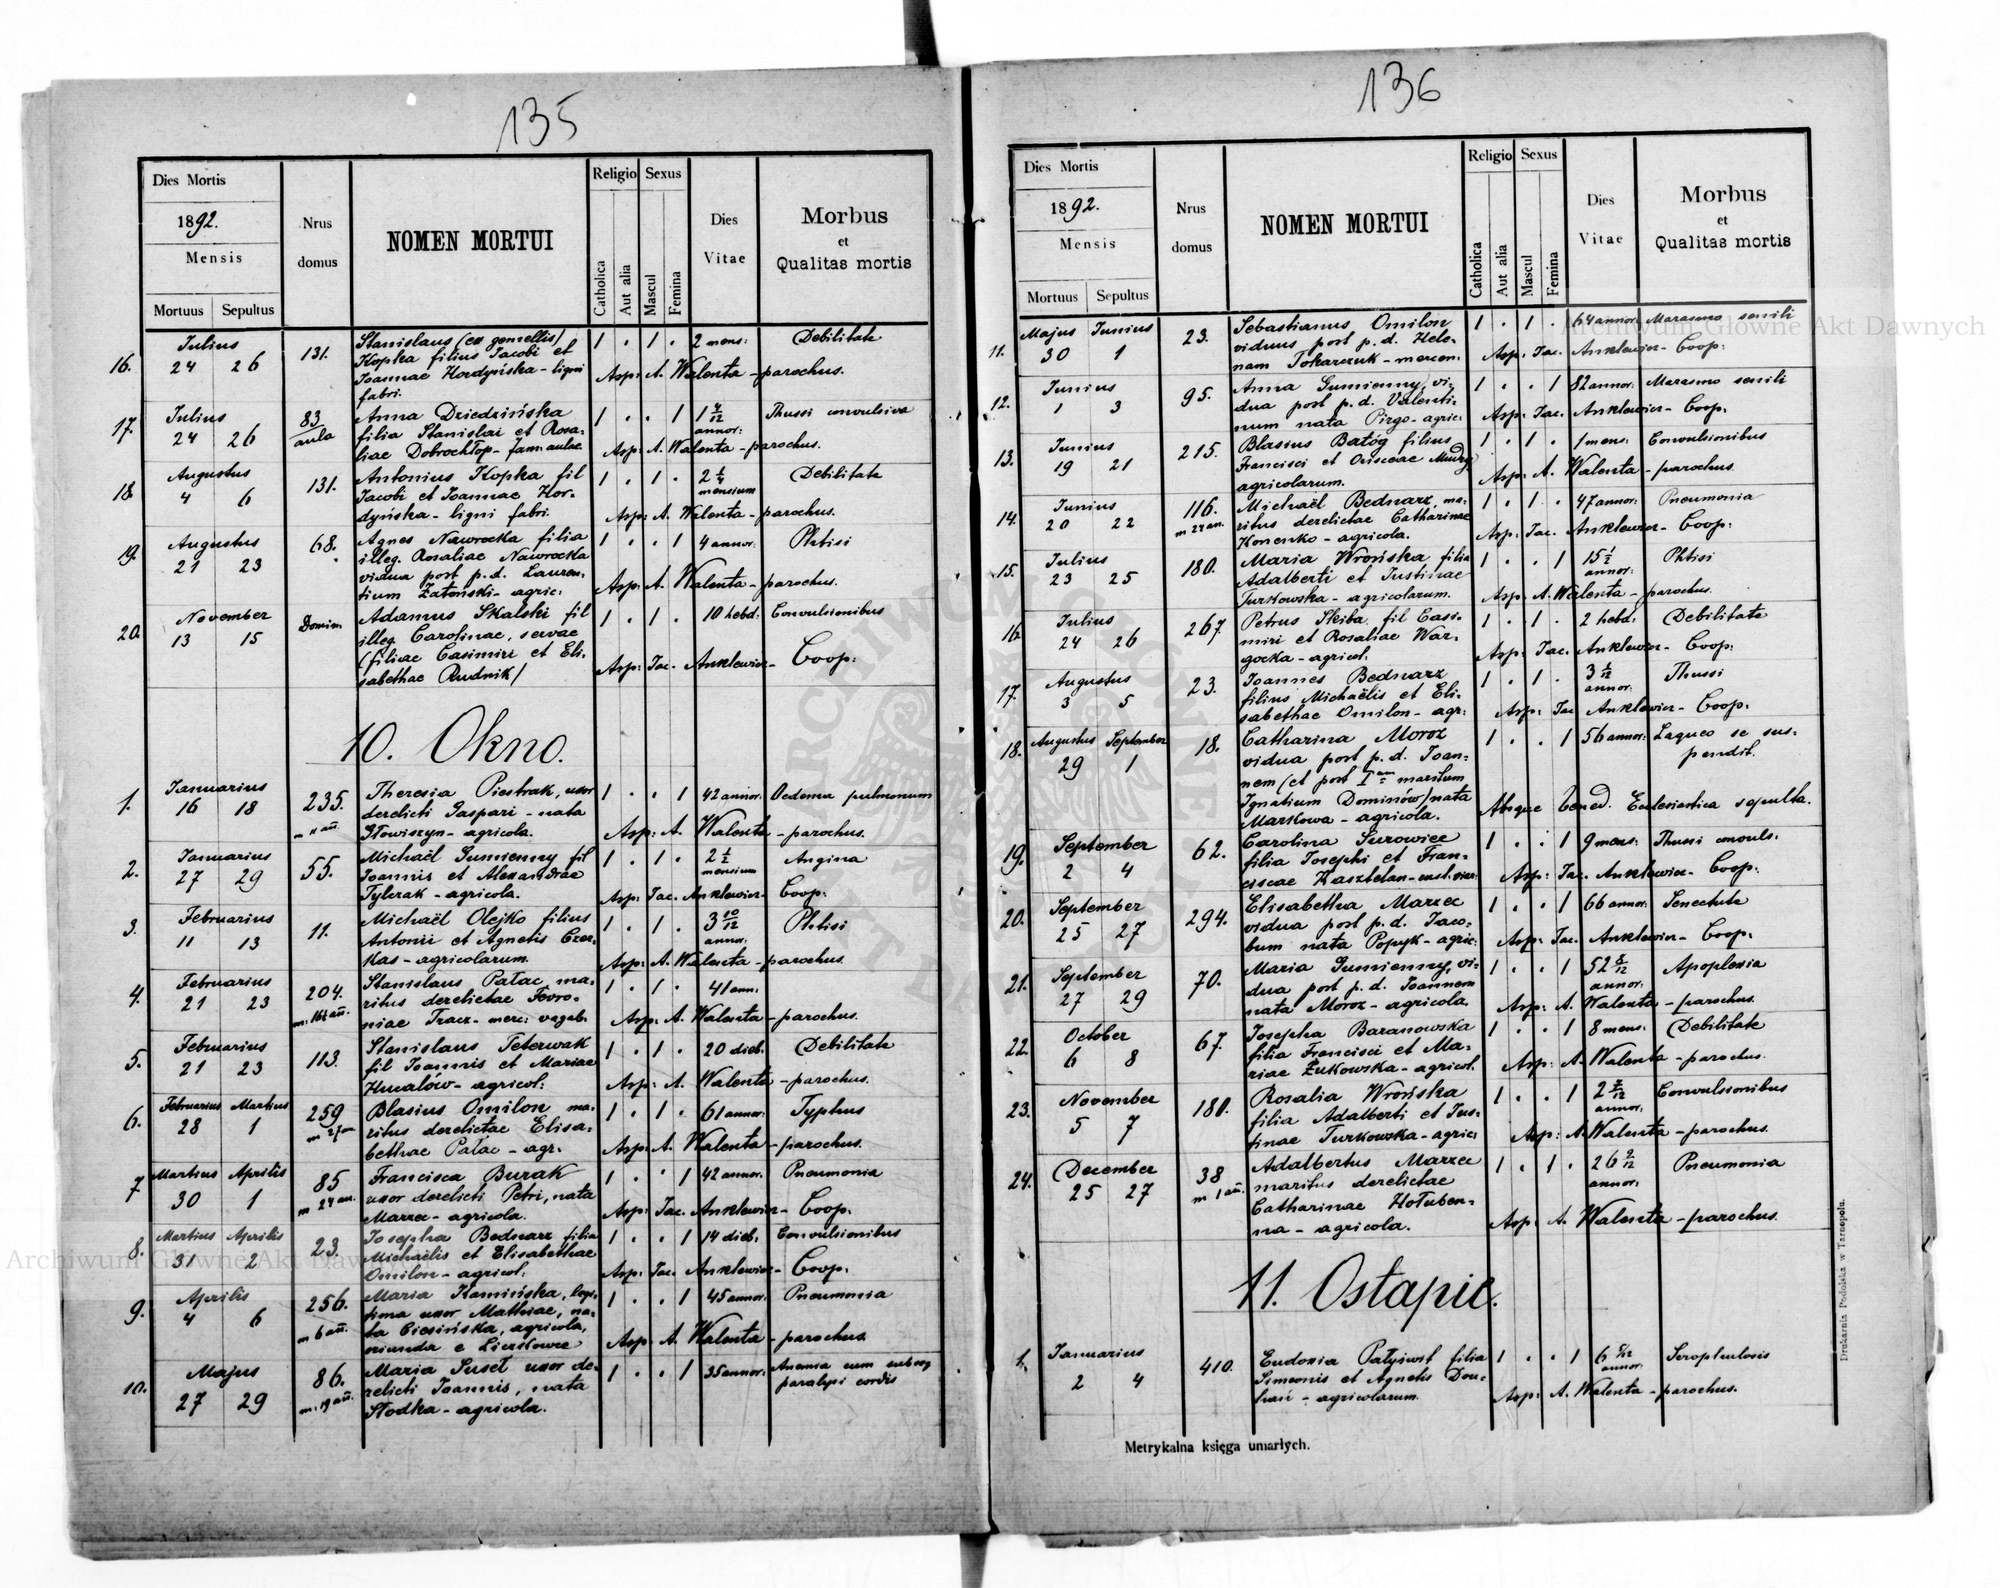 135
Dies Mortis
1892.
Mensis
Mortuus Sepultus
Nrus domus
NOMEN MORTUI
Religio Sexus
Catholica
Aut alia
Mascul
Femina
Dies Vitae
Morbus
et
Qualitas mortis
16. Julius 24 26 131. Stanislaus (ex gemellis) 1 . 1 . 2 mens: Debilitate
Kopka filius Jacobi et
Joannae Hordyńska - ligni
fabri.
Asp: A. Walenta - parochus.
17. Julius 24 26 83/aula Anna Dziedzińska 1 . . 1 1 4/12 annor: Thussi convulsiva
filia Stanislai et Rosa-
liae Dobrochłop - fam: aulae
Asp: A. Walenta - parochus.
18. Augustus 4 6 131. Antonius Kopka fil 1 . 1 . 2 1/4 mensium Debilitate
Jacobi et Joannae Hor-
dyńska - ligni fabri.
Asp: A. Walenta - parochus.
19. Augustus 21 23 68. Agnes Nawrocka filia 1 . . 1 4 annor: Phtisi
illeg. Rosaliae Nawrocka
vidua post p. d. Lauren-
tium Zatoński - agric:
Asp: A. Walenta - parochus.
20. November 13 15 Domin. Adamus Skalski fil 1 . 1 . 10 hebd: Convulsionibus
illeg. Carolinae, servae
(filiae Casimiri et Eli-
sabethae Rudnik)
Asp: Jac. Anklewicz - Coop:
10. Okno.
1. Januarius 16 18 235. m 11 añ. Theresia Piestrak, uxor 1 . . 1 42 annor. Oedema pulmonum
derelicti Gaspari - nata
Słowiszyn - agricola.
Asp: A. Walenta - parochus.
2. Januarius 27 29 55. Michaël Gumienny fil 1 . 1 . 2 1/2 mensium Angina
Joannis et Alexandrae
Tylczak - agricola.
Asp: Jac. Anklewicz - Coop:
3. Februarius 11 13 11. Michaël Olejko filius 1 . 1 . 3 10/12 annor: Phtisi
Antonii et Agnetis Czer-
kas - agricolarum.
Asp: A. Walenta - parochus.
4. Februarius 21 23 204. Stanislaus Pałac ma- 1 . 1 . 41 ann:
ritus derelictae Fevro-
niae Tracz - merc: vagab.
Asp: A. Walenta - parochus.
5. Februarius 21 23 113. Stanislaus Teterwak 1 . 1 . 20 dieb. Debilitate
fil Joannis et Mariae
Hucałów - agricol:
Asp: A. Walenta - parochus.
6. Februarius Martius 28 1 259 Blasius Omilon ma- 1 . 1 . 61 annor: Typhus
ritus derelictae Elisa-
bethae Pałac - agr.
Asp: A. Walenta - parochus.
7 Martius Aprilis 30 1 85 m 24 an. Francisca Burak 1 . . 1 42 annor. Pneumonia
uxor derelicti Petri, nata
Marzec - agricola.
Asp: Jac. Anklewicz - Coop.
8. Martius Aprilis 31 2 23. Josepha Bednarz filia 1 . . 1 14 dieb. Convulsionibus
Michaëlis et Elisabethae
Omilon - agricol:
Asp: Jac. Anklewicz - Coop.
9. Aprilis 4 6 256. m 6 añ. Maria Kamińska, legi- 1 . . 1 45 annor: Pneumonia
tima uxor Mathiae, na-
ta Ciesińska, agricola,
oriunda e
Asp: A. Walenta - parochus
10. Majus 27 29 86. m: 19 añ. Maria Suset uxor de- 1 . . 1 35 annor: Anemia cum
relicti Joannis, nata paralysi cordis
Słodka - agricola.
136
Dies Mortis
1892.
Mensis
Mortuus Sepultus
Nrus domus
NOMEN MORTUI
Religio Sexus
Catholica
Aut alia
Mascul
Femina
Dies Vitae
Morbus
et
Qualitas mortis
11. Majus Junius 30 1 23. Sebastianus Omilon 1 . 1 . 64 annor: Marasmo senili
viduus post p. d. Hele-
nam Tokarczuk - mercen.
Asp: Jac. Anklewicz - Coop:
12. Junius 1 3 95. Anna Gumienny, vi- 1 . . 1 82 annor: Marasmo senili
dua post p. d. Valenti-
num nata Pirgo - agric:
Asp: Jac. Anklewicz - Coop.
13. Junius 19 21 215. Blasius Batóg filius 1 . 1 . 1 mens: Convulsionibus
Francisci et Onisceae Mudry
agricolarum.
Asp: A. Walenta - parochus.
14. Junius 20 22 116. m 24 an. Michaël Bednarz, ma- 1 . 1 . 47 annor: Pneumonia
ritus derelictae Catharinae
Konenko - agricola.
Asp: Jac. Anklewicz - Coop:
15. Julius 23 25 180. Maria Wrońska filia 1 . . 1 15 1/2 annor: Phtisi
Adalberti et Justinae
Turkowska - agricolarum.
Asp: A. Walenta - parochus.
16. Julius 24 26 267. Petrus Skiba fil Casi- 1 . 1 . 2 hebd: Debilitate
miri et Rosaliae War-
gocka - agricol.
Asp: Jac. Anklewicz - Coop:
17. Augustus 3 5 23. Joannes Bednarz 1 . 1 . 3 1/12 annor: Thussi
filius Michaëlis et Eli-
sabethae Omilon - agr:
Asp: Jac Anklewicz - Coop.
18. Augustus September 29 1 18. Catharina Moroz 1 . . 1 56 annor: Laqueo se sus-
vidua post p. d. Joan- pendit.
nem (et post I um maritum
Ignatium Dominów) nata
Markowa - agricola.
Absque bened. Ecclesiastica sepulta.
19. September 2 4 62. Carolina Surowiec 1 . . 1 9 mens: Thussi convuls.
filia Josephi et Fran-
cisceae Kasztelan -
Asp: Jac. Anklewicz - Coop.
20. September 25 27 294. Elisabetha Marzec 1 . . 1 66 annor: Senectute
vidua post p. d. Jaco-
bum nata Popyk - agric:
Asp: Jac. Anklewicz - Coop.
21. September 27 29 70. Maria Gumienny, vi- 1 . . 1 52 8/12 annor: Apoplexia
dua post p. d. Joannem
nata Moroz - agricola.
Asp: A. Walenta - parochus.
22. October 6 8 67. Josepha Baranowska 1 . . 1 8 mens: Debilitate
filia Francisci et Ma-
riae Żukowska - agricol.
Asp: A. Walenta - parochus.
23. November 5 7 180. Rosalia Wrońska 1 . . 1 2 7/12 annor: Convulsionibus
filia Adalberti et Jus-
tinae Turkowska - agric:
Asp: A. Walenta - parochus.
24. December 25 27 38 m 1 añ. Adalbertus Marzec 1 . 1 . 26 9/12 annor: Pneumonia
maritus derelictae
Catharinae Hołuben-
na - agricola.
Asp: A. Walenta - parochus.
11. Ostapie.
1. Januarius 2 4 410. Eudoxia Patyświt filia 1 . . 1 6 annor: Scrophulosis
Simeonis et Agnetis Dou-
hań - agricolarum.
Asp: A. Walenta - parochus.
Metrykalna księga umarłych.
Drukarnia Podolska w Tarnopolu.
Archiwum Główne Akt Dawnych
Archiwum Główne Akt Dawnych